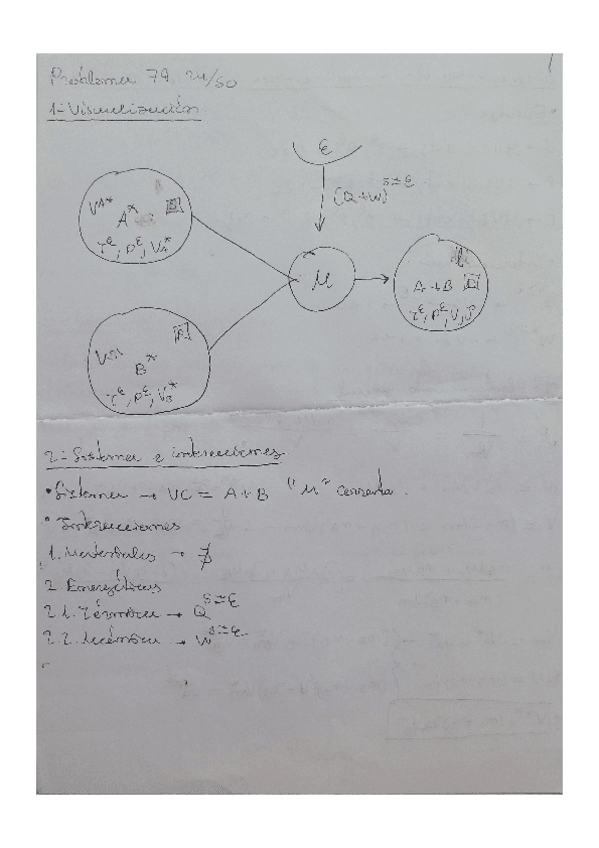 Problema 79 24/50
1-Visualización
ε
(Q+W)^S⇌ε
V_A*
A*
T^ε, P^ε, V_A*
μ
A+B
T^ε, P^ε, V, 
B*
T^ε, P^ε, V_B*
2-Sistema e interacciones
• Sistema → VC = A+B "μ" cerrada.
• Interacciones
1. Materiales → ∄
2. Energéticas
2.1. Térmica → Q^S⇌ε
2.2. Mecánica → W^S⇌ε